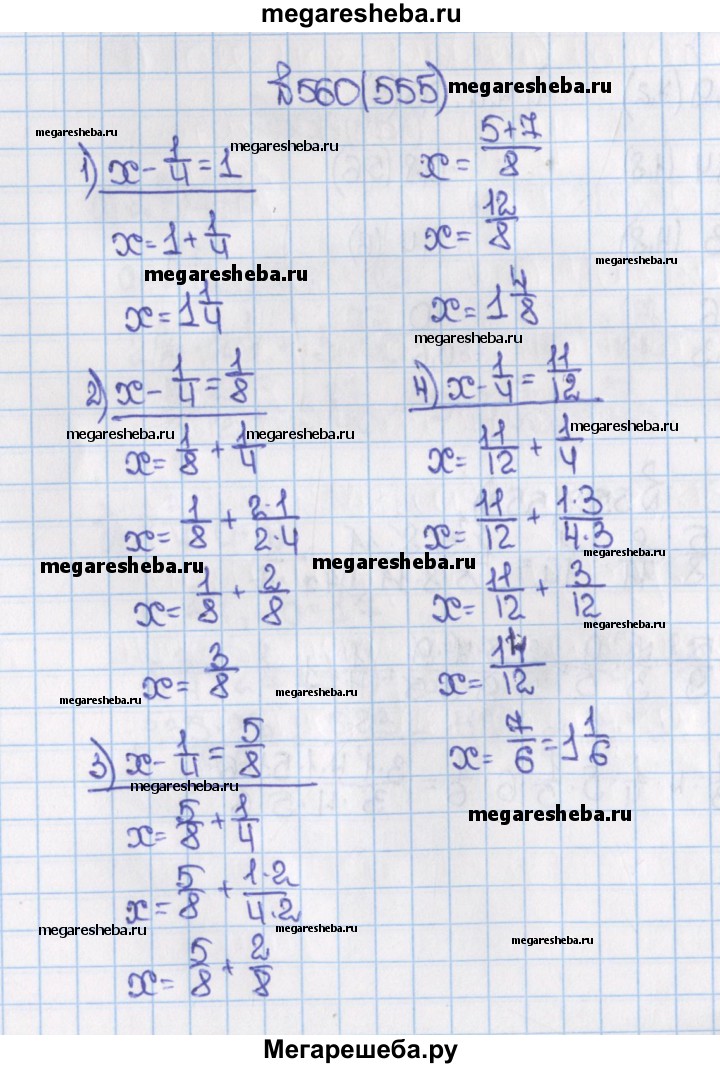 megaresheba.ru
№560(555)
megaresheba.ru
megaresheba.ru
1) x - 1/4 = 1
megaresheba.ru
x = 1 + 1/4
megaresheba.ru
x = 1 1/4
2) x - 1/4 = 1/8
megaresheba.ru
megaresheba.ru
x = 1/8 + 1/4
x = 1/8 + 2·1/2·4
megaresheba.ru
x = 1/8 + 2/8
x = 3/8
megaresheba.ru
megaresheba.ru
3) x - 1/4 = 5/8
megaresheba.ru
x = 5/8 + 1/4
x = 5/8 + 1·2/4·2
megaresheba.ru
megaresheba.ru
x = 5/8 + 2/8
x = 5+7/8
x = 12/8
megaresheba.ru
x = 1 4/8
megaresheba.ru
4) x - 1/4 = 11/12
megaresheba.ru
x = 11/12 + 1/4
x = 11/12 + 1·3/4·3
megaresheba.ru
x = 11/12 + 3/12
megaresheba.ru
x = 14/12
x = 7/6 = 1 1/6
megaresheba.ru
megaresheba.ru
Мегарешеба.ру